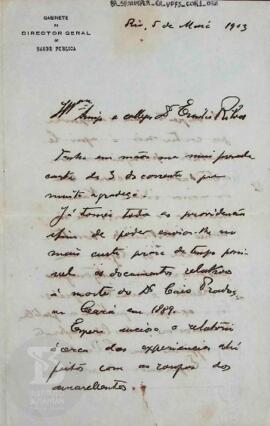 GABINETE
DO
DIRECTOR GERAL
DE
SAUDE PUBLICA
Rio, 5 de Maio 1903
Amigo e collega Dr Emilio Ribas
Tenho em mãos sua mui prezada
carta de 3 do corrente, que
muito agradeço.
Já tomei todas as providencias
afim de poder enviar-lhe no
mais curto prazo de tempo possi-
vel os documentos relativos
á morte do Dr Caio Prado,
no Ceará em 1889.
Espero ancioso o relatorio
ácerca das experiencias ahi
feitas com as roupas dos
amarellentos.
INSTITUTO
BUTANTAN